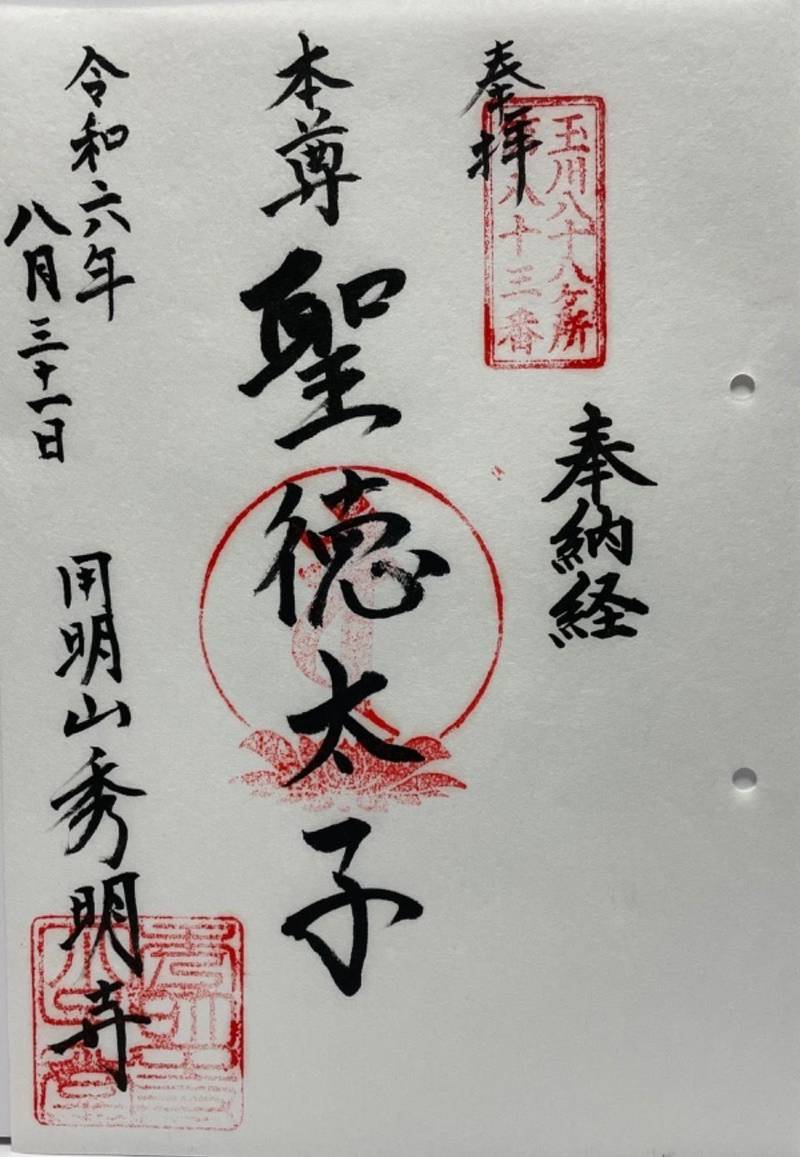 玉川八十八ヶ所
第八十三番
奉拝
奉納経
本尊 聖徳太子
令和六年
八月三十一日
用明山秀明寺